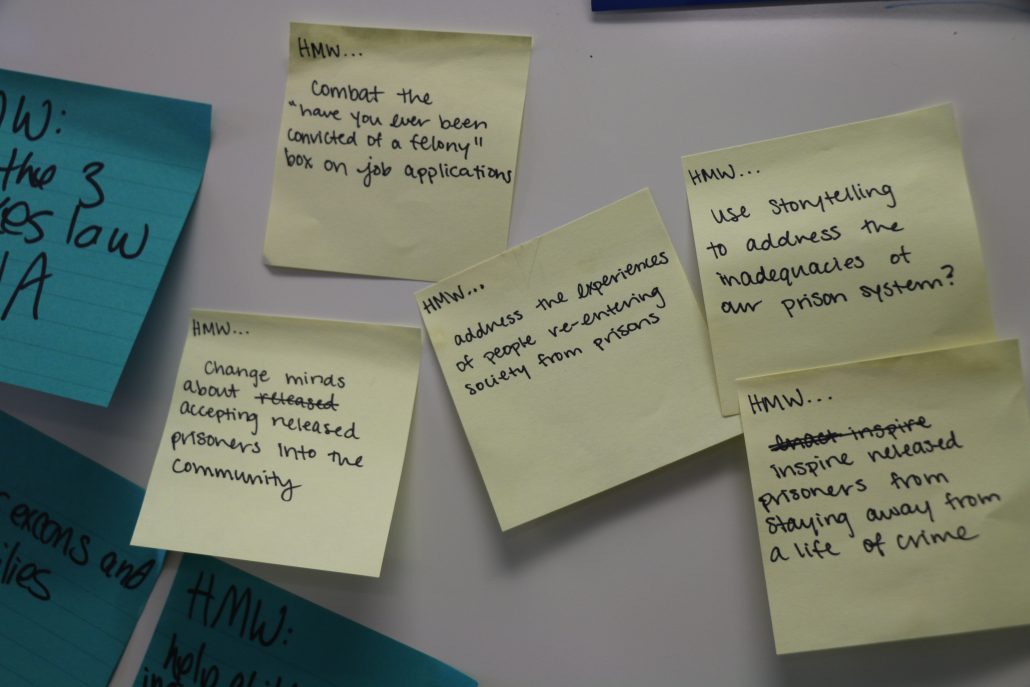 HMW...
Combat the
"have you ever been
convicted of a felony"
box on job applications
W:
the 3
es law
A
HMW...
use storytelling
to address the
inadequacies of
our prison system?
HMW...
address the experiences
of people re-entering
society from prisons
HMW...
Change minds
about released
accepting released
prisoners into the
community
HMW...
inspire
inspire released
prisoners from
staying away from
a life of crime
excons and
lies
HMW:
help